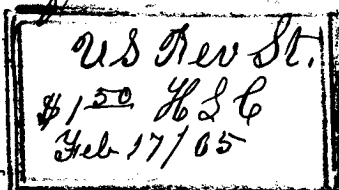 U S Rev St.
$1 50 H L C
Feb 17/05